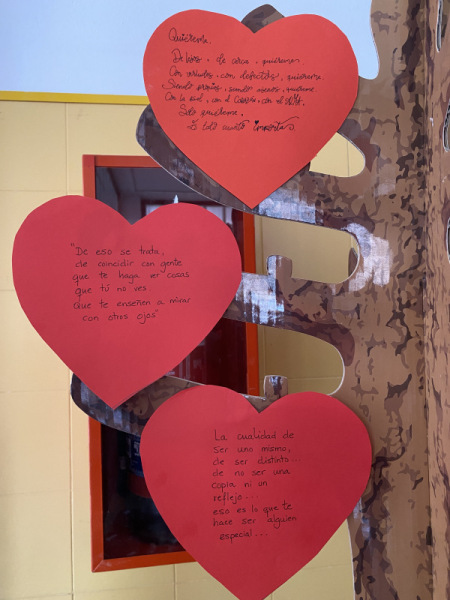 Quiéreme.
De lejos, de cerca, quiéreme.
Con virtudes, con defectos, quiéreme.
Siendo propios, siendo ajenos, quiéreme.
Con la piel, con el corazón, con el alma.
Solo quiéreme.
todo importa.
"De eso se trata,
de coincidir con gente
que te haga ver cosas
que tú no ves.
Que te enseñen a mirar
con otros ojos"
La cualidad de
ser uno mismo,
de ser distinto...
de no ser una
copia ni un
reflejo...
eso es lo que te
hace ser alguien
especial...